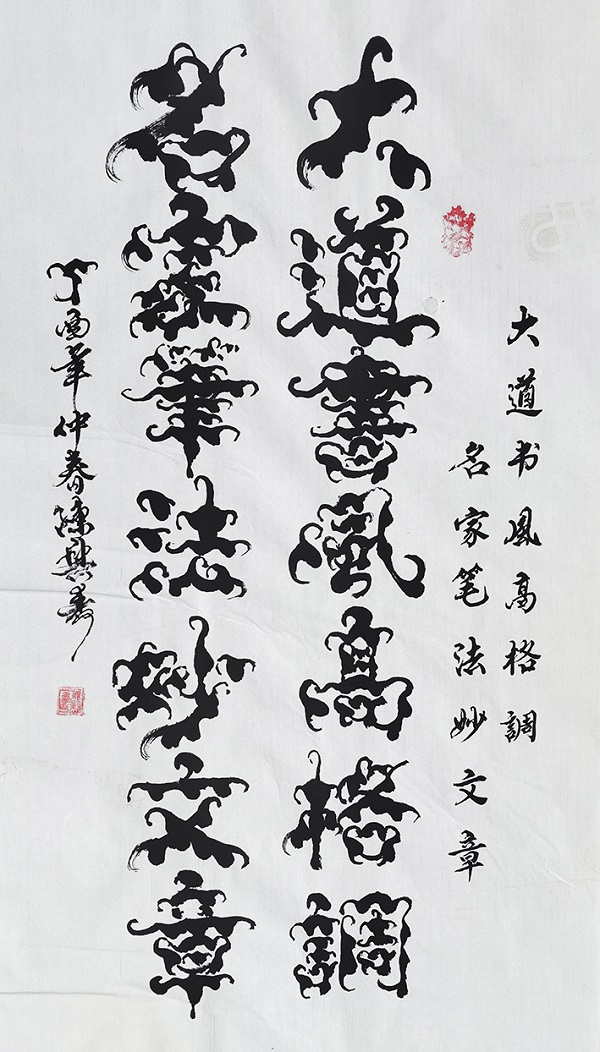 大道书风高格調
名家笔法妙文章
大道書風高格調
名家筆法妙文章
丁酉年仲春陳興壽